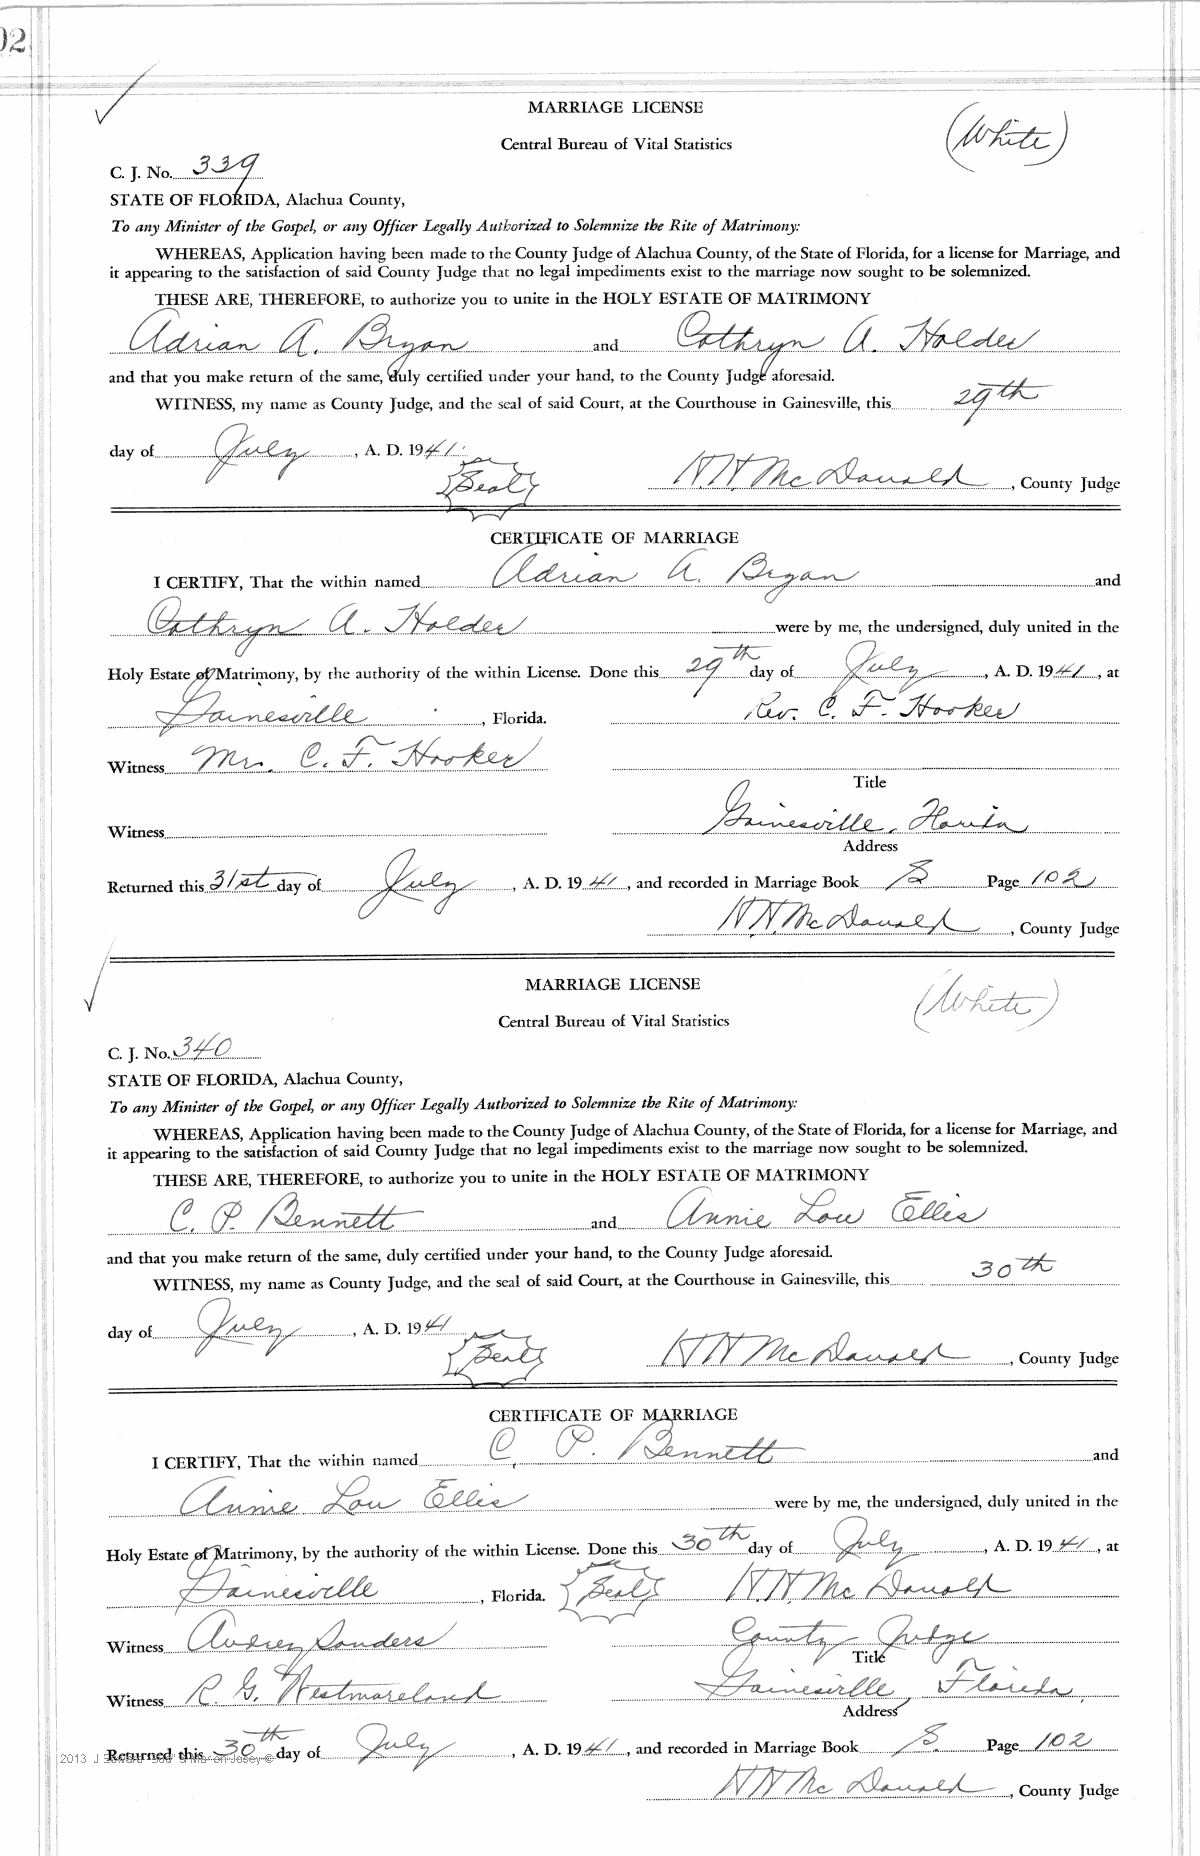 02
MARRIAGE LICENSE
(White)
Central Bureau of Vital Statistics
C. J. No. 339
STATE OF FLORIDA, Alachua County,
To any Minister of the Gospel, or any Officer Legally Authorized to Solemnize the Rite of Matrimony:
WHEREAS, Application having been made to the County Judge of Alachua County, of the State of Florida, for a license for Marriage, and
it appearing to the satisfaction of said County Judge that no legal impediments exist to the marriage now sought to be solemnized.
THESE ARE, THEREFORE, to authorize you to unite in the HOLY ESTATE OF MATRIMONY
Adrian A. Bryan and Cathryn A. Holder
and that you make return of the same, duly certified under your hand, to the County Judge aforesaid.
WITNESS, my name as County Judge, and the seal of said Court, at the Courthouse in Gainesville, this 29th
day of July, A. D. 1941.
Seal H.H. McDonald, County Judge
CERTIFICATE OF MARRIAGE
I CERTIFY, That the within named Adrian A. Bryan and
Cathryn A. Holder were by me, the undersigned, duly united in the
Holy Estate of Matrimony, by the authority of the within License. Done this 29th day of July, A. D. 1941, at
Gainesville, Florida. Rev. C. F. Hooker
Witness Mrs. C. F. Hooker
Title
Witness Gainesville, Florida
Address
Returned this 31st day of July, A. D. 1941, and recorded in Marriage Book S Page 102
H.H. McDonald, County Judge
MARRIAGE LICENSE
(White)
Central Bureau of Vital Statistics
C. J. No. 340
STATE OF FLORIDA, Alachua County,
To any Minister of the Gospel, or any Officer Legally Authorized to Solemnize the Rite of Matrimony:
WHEREAS, Application having been made to the County Judge of Alachua County, of the State of Florida, for a license for Marriage, and
it appearing to the satisfaction of said County Judge that no legal impediments exist to the marriage now sought to be solemnized.
THESE ARE, THEREFORE, to authorize you to unite in the HOLY ESTATE OF MATRIMONY
C. P. Bennett and Annie Lou Ellis
and that you make return of the same, duly certified under your hand, to the County Judge aforesaid.
WITNESS, my name as County Judge, and the seal of said Court, at the Courthouse in Gainesville, this 30th
day of July, A. D. 1941
Seal H H McDonald, County Judge
CERTIFICATE OF MARRIAGE
I CERTIFY, That the within named C. P. Bennett and
Annie Lou Ellis were by me, the undersigned, duly united in the
Holy Estate of Matrimony, by the authority of the within License. Done this 30th day of July, A. D. 1941, at
Gainesville, Florida. Seal H.H. McDonald
Witness Audrey Sanders County Judge
Title
Witness R. G. Westmoreland Gainesville, Florida.
Address
Returned this 30th day of July, A. D. 1941, and recorded in Marriage Book S. Page 102
2013 J
H H McDonald, County Judge